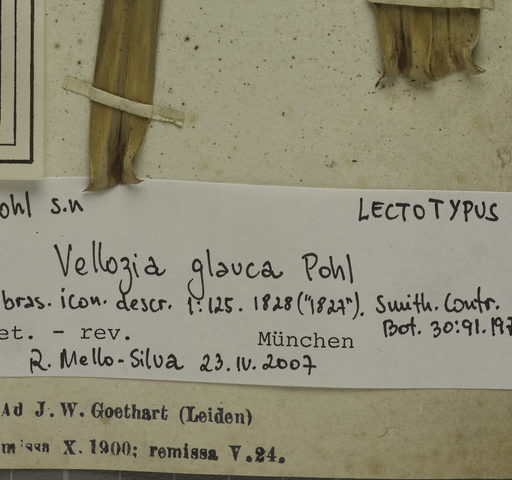 ohl s.n LECTOTYPUS
Vellozia glauca Pohl
bras. icon. descr. 1:125. 1828 ("1827"). Smith. Contr.
Bot. 30:91. 197
et. - rev. München
R. Mello-Silva 23.IV.2007
Ad J. W. Goethart (Leiden)
missa X. 1900; remissa V.24.